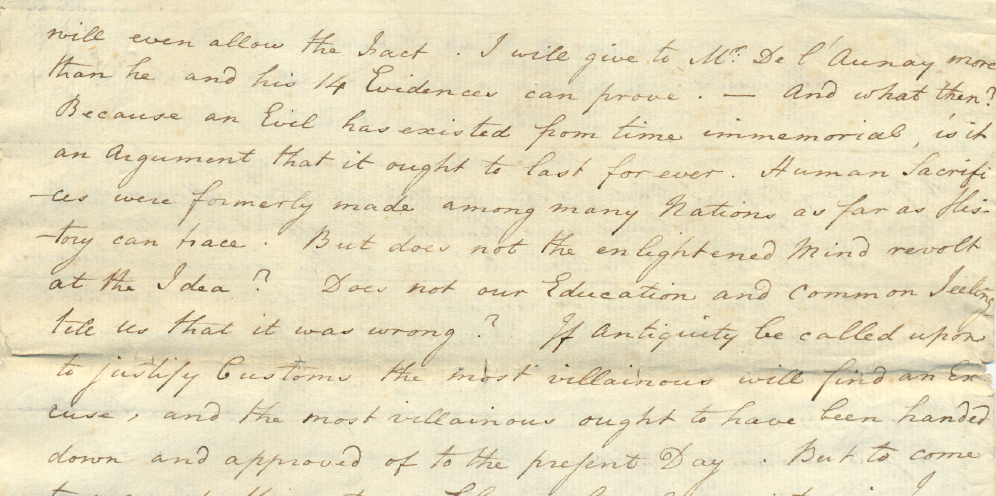 will even allow the Fact . I will give to Mr. De l'Aunay more
than he and his 14 Evidences can prove . — And what then?
Because an Evil has existed from time immemorial, is it
an Argument that it ought to last for ever . Human Sacrifi
-ces were formerly made among many Nations as far as His-
-tory can trace . But does not the enlightened Mind revolt
at the Idea ? Does not our Education and common Feeling
tell us that it was wrong ? If Antiquity be called upon
to justify Customs the most villainous will find an Ex
cuse , and the most villainous ought to have been handed
down and approved of to the present Day . But to come